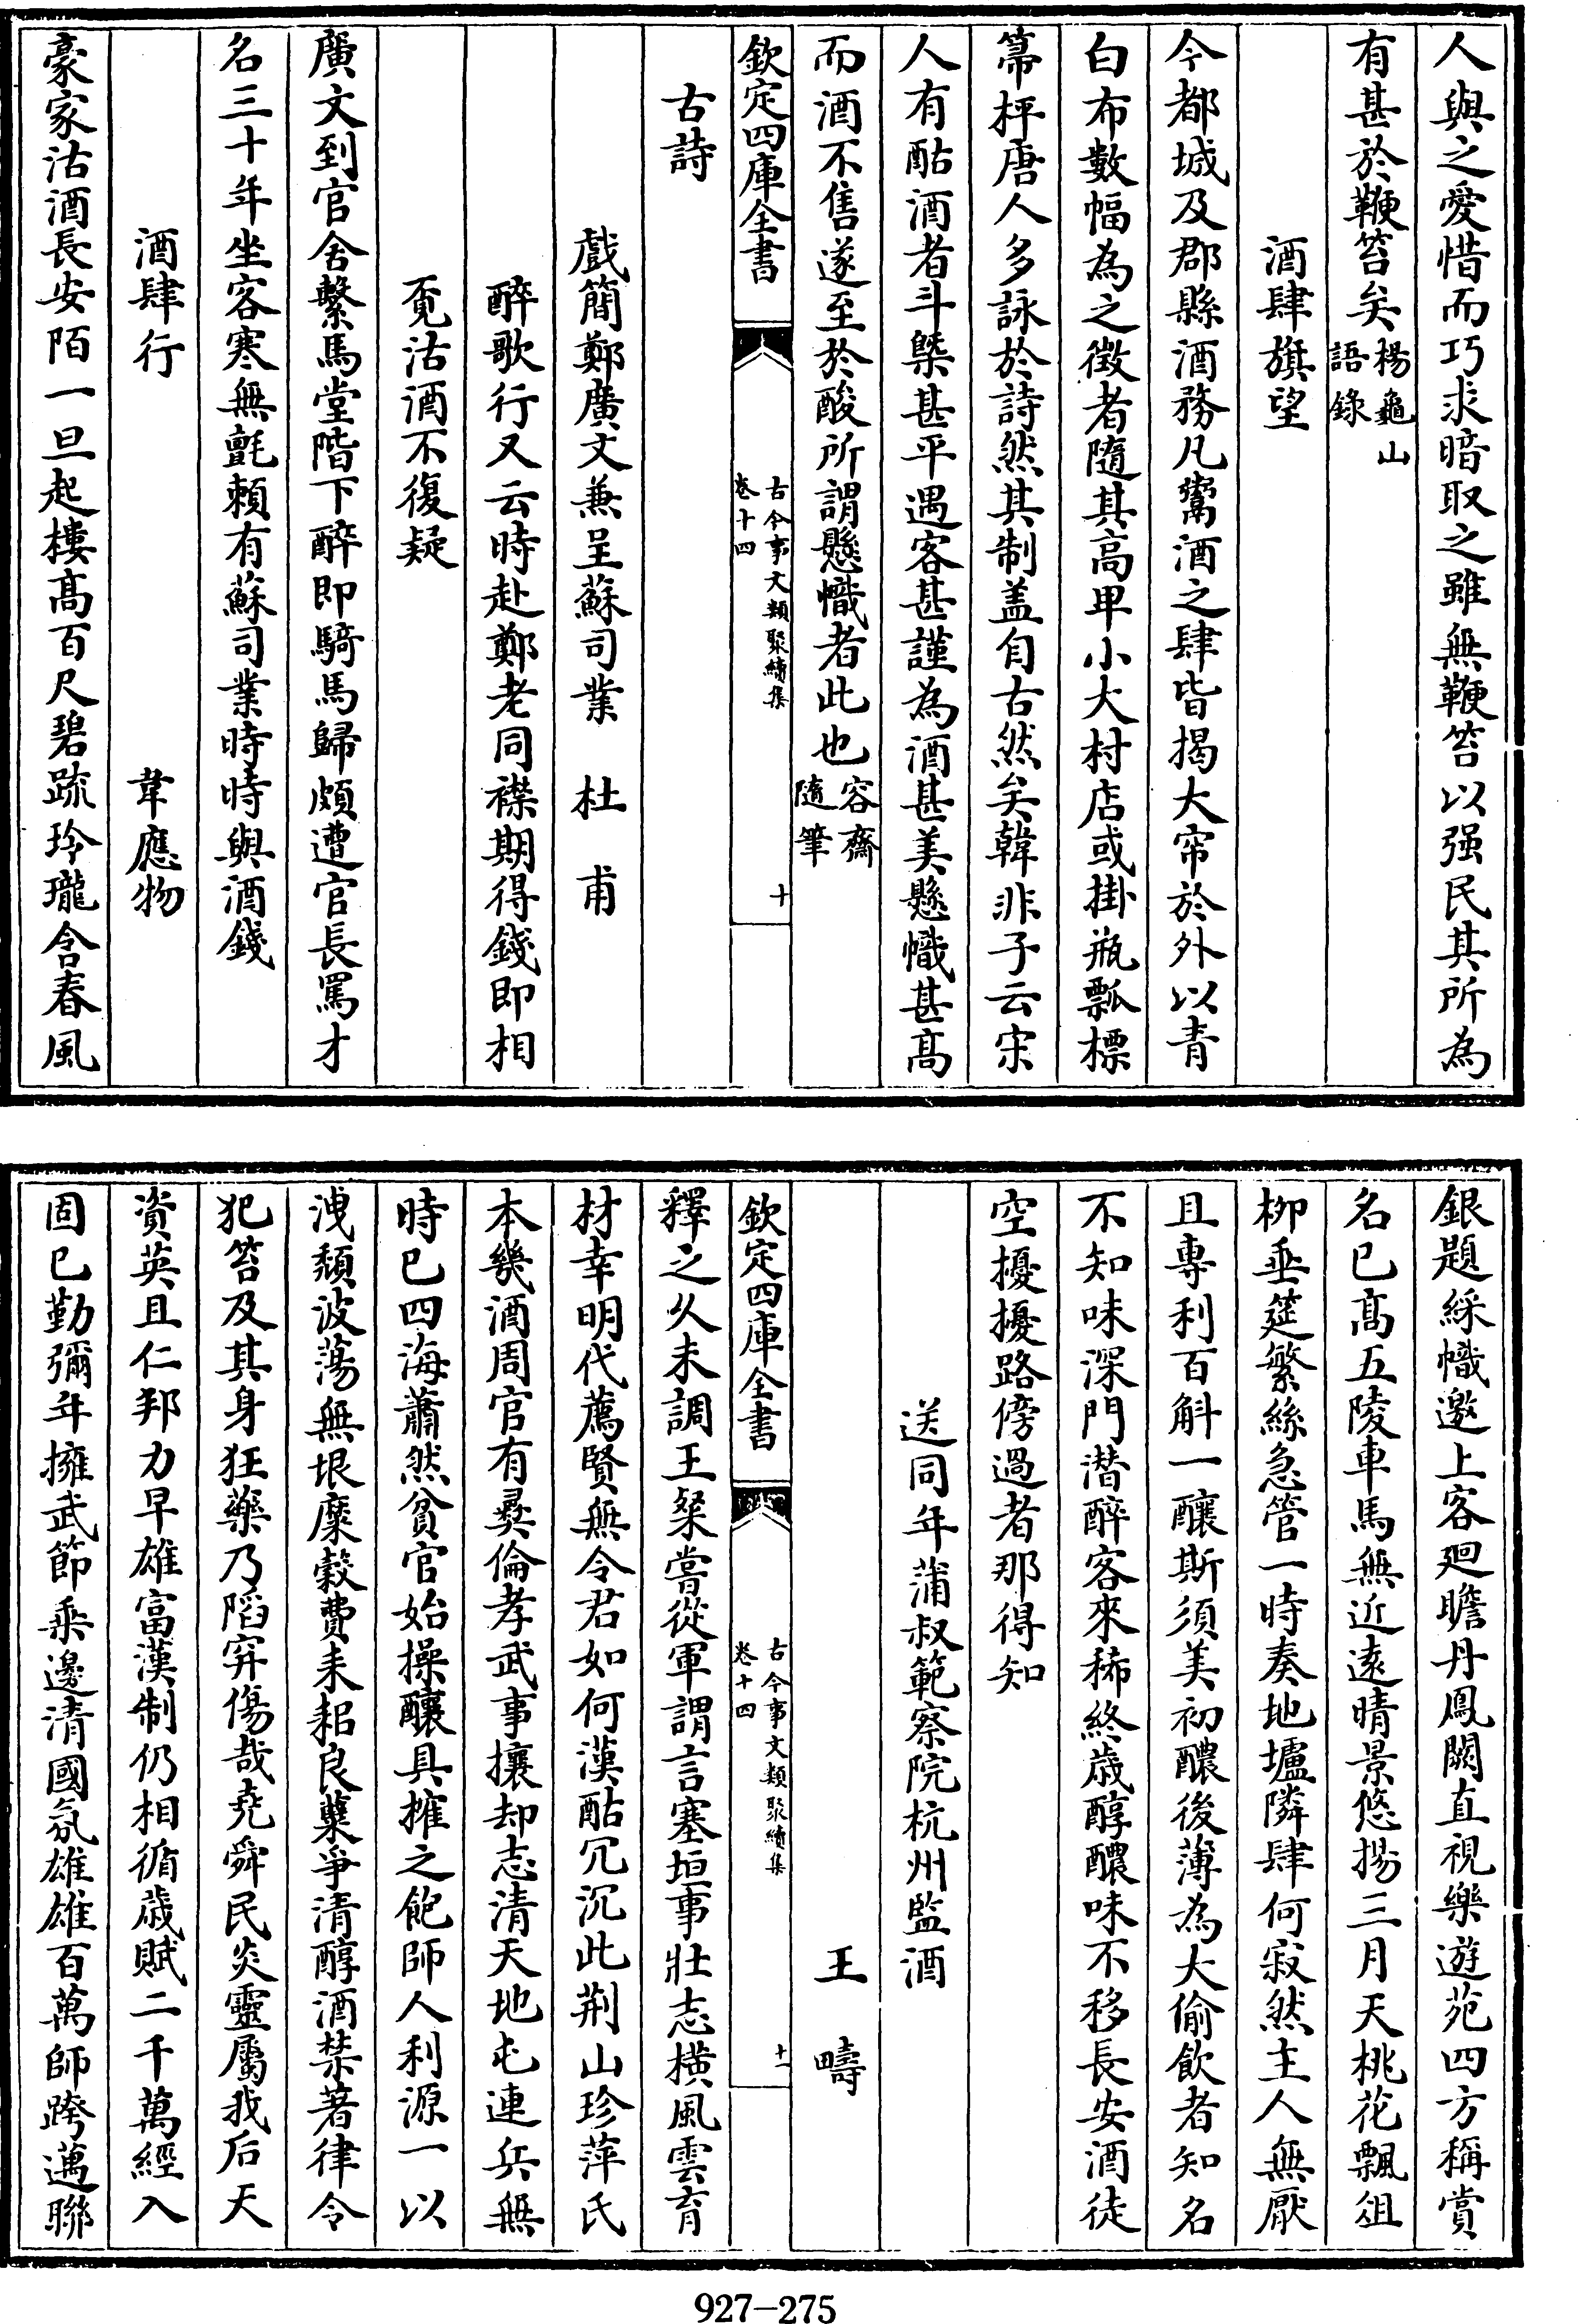 人與之愛惜而巧求暗取之雖無鞭笞以强民其所為
有甚於鞭笞矣楊龜山語錄
酒肆旗望
今都城及郡縣酒務凡鬻酒之肆皆揭大帘於外以青
白布數幅為之微者隨其高卑小大村店或掛瓶瓢標
箒枰唐人多詠於詩然其制盖自古然矣韓非子云宋
人有酤酒者斗槩甚平遇客甚謹為酒甚美懸幟甚高
而酒不售遂至於酸所謂懸幟者此也容齋隨筆
欽定四庫全書
古今事文類聚續集
卷十四
十
古詩
戲簡鄭廣文兼呈蘇司業 杜甫
醉歌行又云時赴鄭老同襟期得錢即相
覓沽酒不復疑
廣文到官舍繫馬堂階下醉即騎馬歸頗遭官長罵才
名三十年坐客寒無氊賴有蘇司業時時與酒錢
酒肆行 韋應物
豪家沽酒長安陌一旦起樓髙百尺碧疏玲瓏含春風
銀題綵幟邀上客迴瞻丹鳳闕直視樂遊苑四方稱賞
名已髙五陵車馬無近遠晴景悠揚三月天桃花飄俎
栁垂筵繁絲急管一時奏地壚隣肆何寂然主人無厭
且専利百斛一釀斯須美初醲後薄為大偷飲者知名
不知味深門潜醉客來稀終歳醇醲味不移長安酒徒
空擾擾路傍過者那得知
送同年蒲叔範察院杭州監酒
王疇
欽定四庫全書
古今事文類聚續集
卷十四
十一
釋之久未調王粲嘗從軍謂言塞垣事壯志橫風雲育
材幸明代薦賢無令君如何漢酤冗沉此荆山珍萍氏
本幾酒周官有彛倫孝武事攘却志清天地屯連兵無
時已四海蕭然貧官始操釀具㩁之飽師人利源一以
洩頽波蕩無垠糜穀費耒耜良蘖爭清醇酒禁著律令
犯笞及其身狂藥乃䧟穽傷哉堯舜民炎靈屬我后天
資英且仁邦力早雄富漢制仍相循歳賦二千萬經入
固已勤彌年擁武節乗邊清國氛雄雄百萬師跨邁聯
927-275